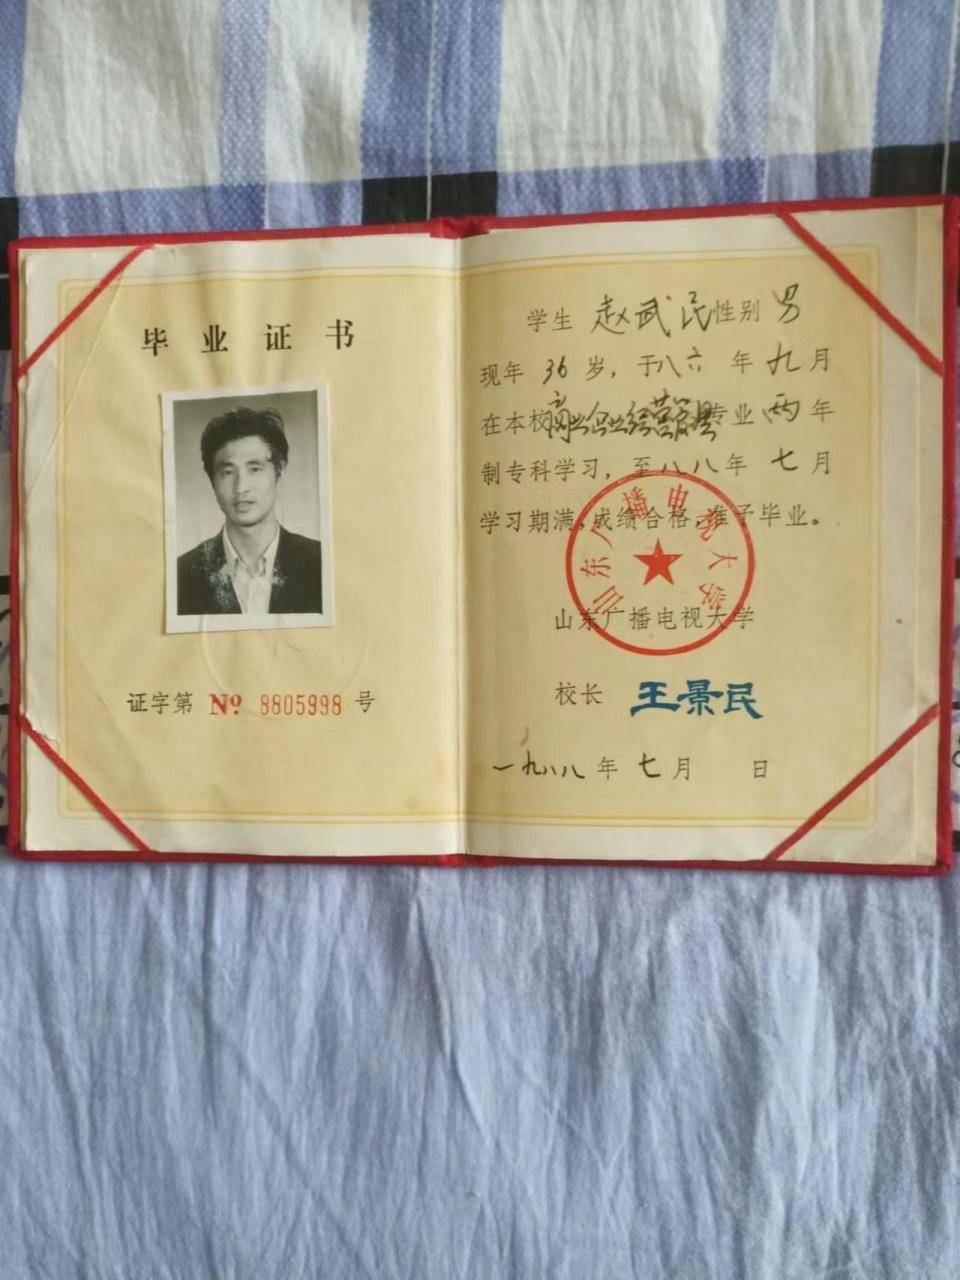 毕业证书
证字第 № 8805998 号
学生 赵武民 性别 男
现年 36 岁，于八六年九月
在本校商业企业经营管理专业两年
制专科学习，至八八年七月
学习期满，成绩合格，准予毕业。
山东广播电视大学
山东广播电视大学
校长 王景民
一九八八年七月 日